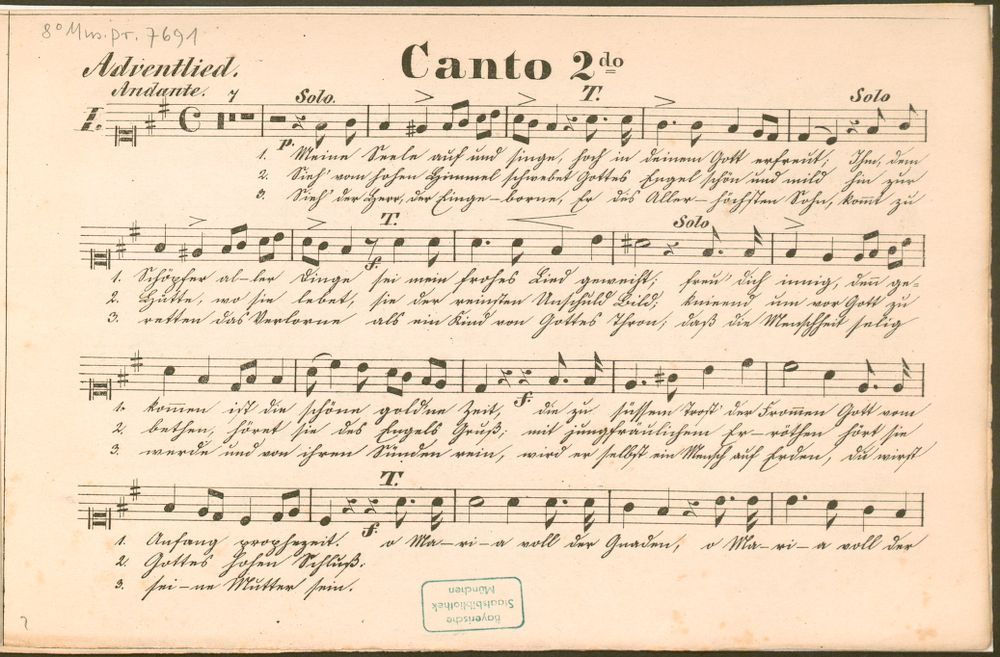 8° Mus. pr. 7691
Canto 2do
Adventlied.
Andante. 7 Solo. T. Solo
I.
p.
1. Meine Seele auf und singe, hoch in deinem Gott erfreut; Ihm, dem
2. Sieh' vom hohen Himmel schwebet Gottes Engel schön und mild hin zur
3. Sieh' der Herr, der Einge-borne, Er des Aller-höchsten Sohn, kommt zu
T. Solo
f.
1. Schöpfer al-ler Dinge sei mein frohes Lied geweiht; freu' dich innig, denn ge-
2. Hütte, wo sie lebet, sie der reinsten Unschuld Bild; knieend um vor Gott zu
3. retten das Verlorne als ein Kind von Gottes Thron; daß die Menschheit selig
f.
1. kommen ist die schöne goldne Zeit, die zu süssem Trost der Frommen Gott vom
2. bethen, höret sie des Engels Gruß; mit jungfräulichem Er-röthen hört sie
3. werde und von ihren Sünden rein, wird er selbst ein Mensch auf Erden, du wirst
T.
f.
1. Anfang prophezeit. o Ma-ri-a voll der Gnaden, o Ma-ri-a voll der
2. Gottes hohen Schluß.
3. sei-ne Mutter sein.
Bayerische
Staatsbibliothek
München